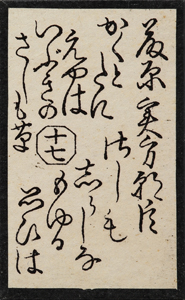 藤原実方朝臣
かくとたに
えやは
いふきの
さしも草
十七
さしも
しらしな
もゆる
思ひ